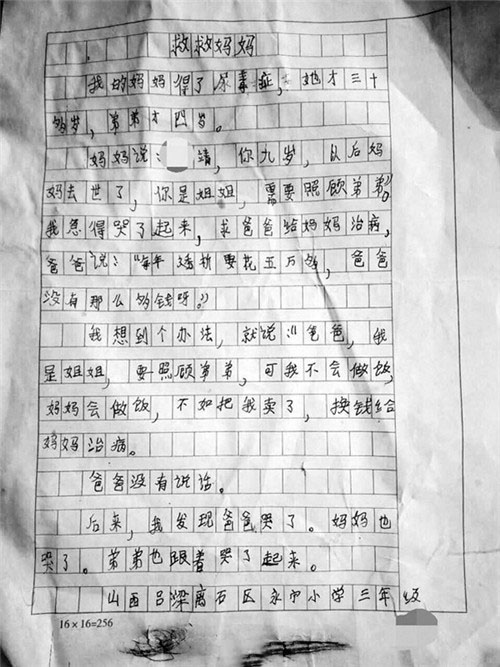 救救妈妈
我的妈妈得了尿毒症，她才三十
多岁，弟弟才四岁。
妈妈说：靖，你九岁，以后妈
妈去世了，你是姐姐，需要照顾弟弟”。
我急得哭了起来，求爸爸给妈妈治病，
爸爸说：“每年透析要花五万多，爸爸
没有那么多钱呀。”
我想到个办法，就说“爸爸，我
是姐姐，要照顾弟弟，可我不会做饭，
妈妈会做饭，不如把我卖了，换钱给
妈妈治病。
爸爸没有说话。
后来，我发现爸爸哭了。妈妈也
哭了。弟弟也跟着哭了起来。
山西吕梁离石区永宁小学三年级
16×16=256